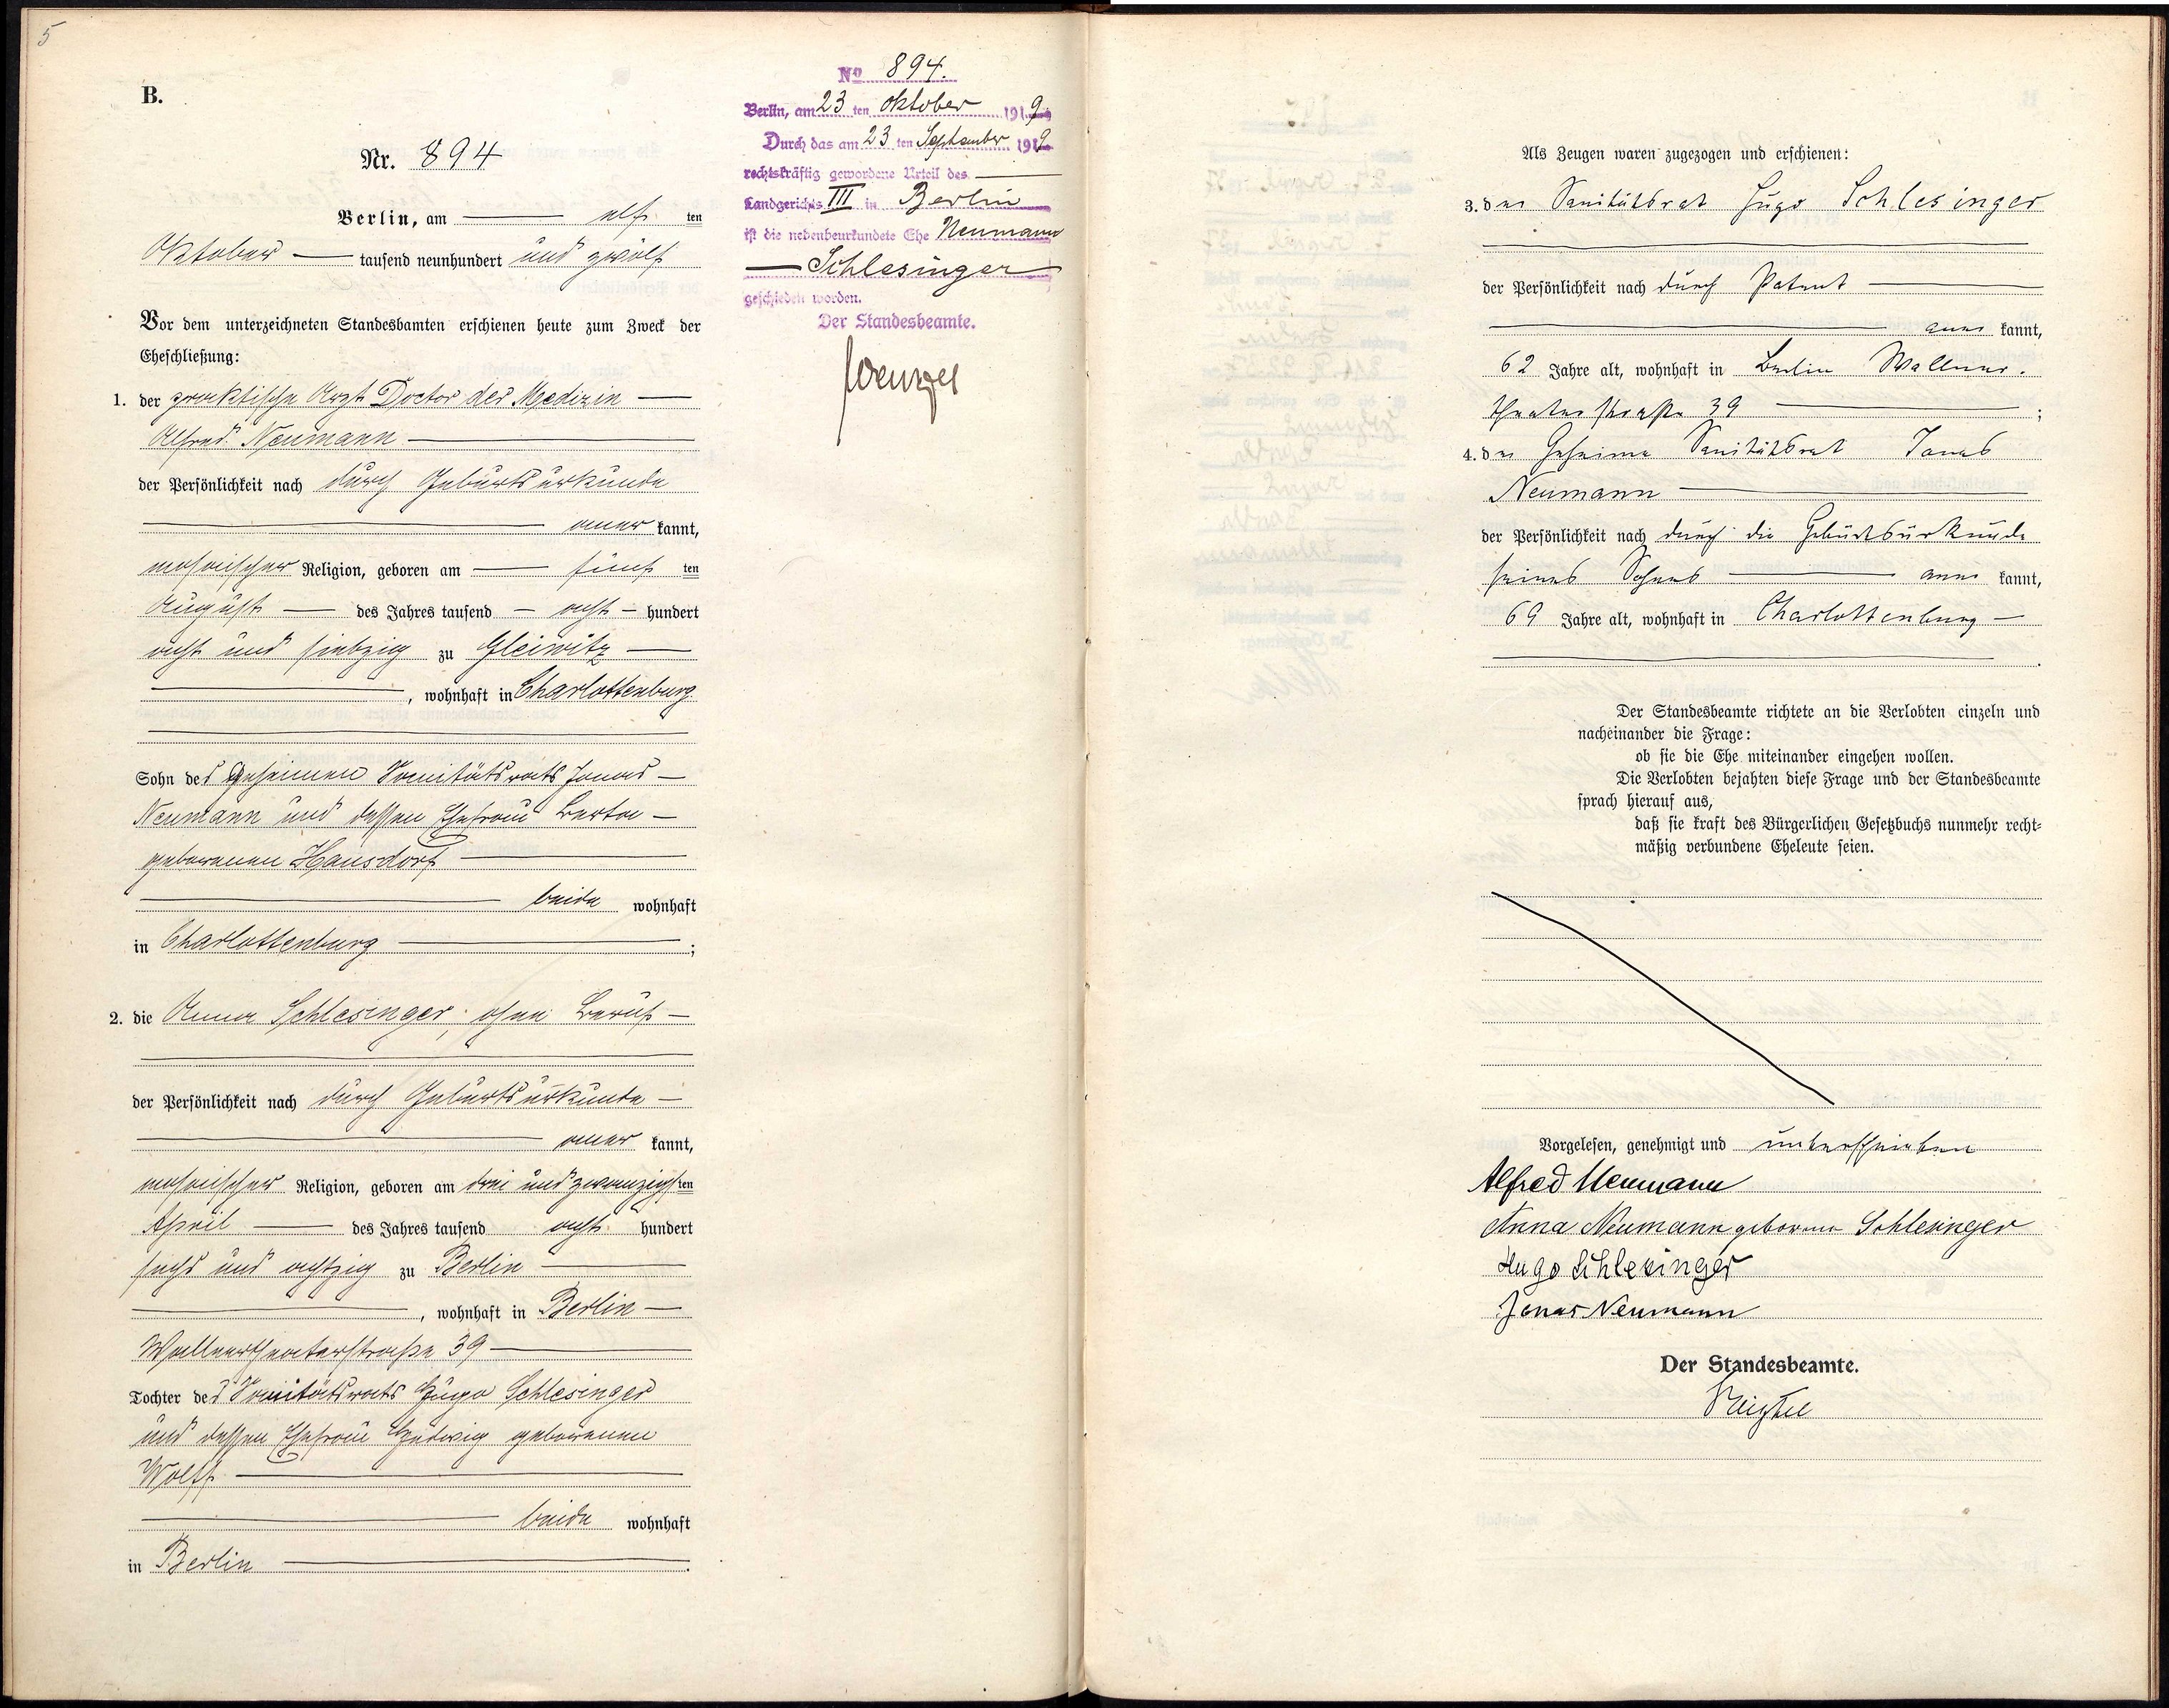 5
B.
Nr. 894
Berlin, am elf ten
Oktober tausend neunhundert und zwölf
Vor dem unterzeichneten Standesbamten erschienen heute zum Zweck der
Eheschließung:
1. der praktische Arzt Doctor der Medizin
Alfred Neumann
der Persönlichkeit nach durch Geburtsurkunde
aner kannt,
mosaischer Religion, geboren am fünf ten
August des Jahres tausend acht hundert
acht und siebzig zu Gleiwitz
, wohnhaft in Charlottenburg
Sohn des Geheimen Sanitätsrats Jonas
Neumann und dessen Ehefrau Berta
geborenen Hausdorf
beide wohnhaft
in Charlottenburg ;
2. die Anna Schlesinger, ohne Beruf
der Persönlichkeit nach durch Geburtsurkunde
aner kannt,
mosaischer Religion, geboren am drei und zwanzigsten
April des Jahres tausend acht hundert
sechs und achtzig zu Berlin
, wohnhaft in Berlin
Wallnertheaterstraße 39
Tochter des Sanitätsrats Hugo Schlesinger
und dessen Ehefrau Hedwig geborenen
Wolff
beide wohnhaft
in Berlin .
No 894.
Berlin, am 23 ten Oktober 1919
Durch das am 23 ten September 1919
rechtskräftig gewordene Urteil des
Landgerichts III in Berlin
ist die nebenbeurkundete Ehe Neumann
Schlesinger
geschieden worden.
Der Standesbeamte.
Als Zeugen waren zugezogen und erschienen:
3. der Sanitätsrat Hugo Schlesinger
der Persönlichkeit nach durch Patent
aner kannt,
62 Jahre alt, wohnhaft in Berlin Wallner-
theaterstraße 39 ;
4. der Geheime Sanitätsrat Jonas
Neumann
der Persönlichkeit nach durch die Geburtsurkunde
seines Sohnes aner kannt,
69 Jahre alt, wohnhaft in Charlottenburg
.
Der Standesbeamte richtete an die Verlobten einzeln und
nacheinander die Frage:
ob sie die Ehe miteinander eingehen wollen.
Die Verlobten bejahten diese Frage und der Standesbeamte
sprach hierauf aus,
daß sie kraft des Bürgerlichen Gesetzbuchs nunmehr recht-
mäßig verbundene Eheleute seien.
Vorgelesen, genehmigt und unterschrieben
Alfred Neumann
Anna Neumann geborene Schlesinger
Hugo Schlesinger
Jonas Neumann
Der Standesbeamte.